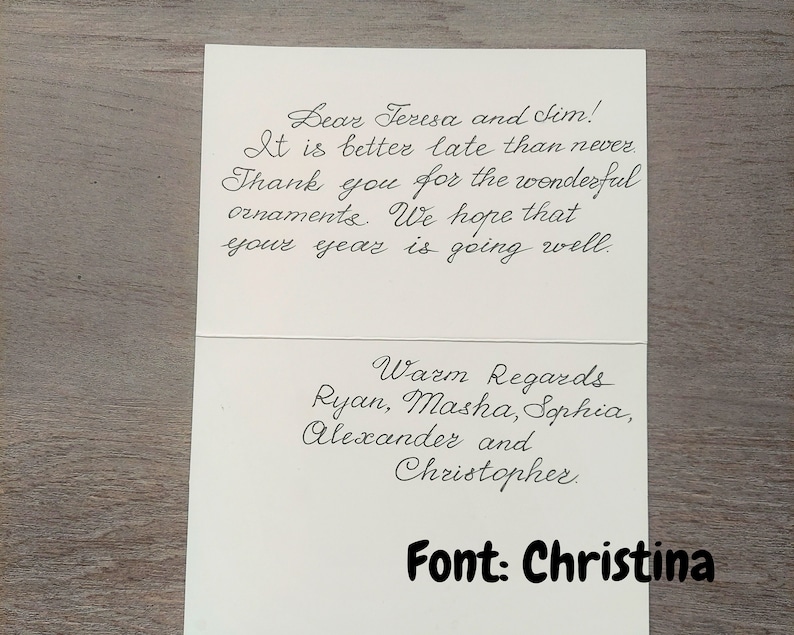 Dear Teresa and Jim!
It is better late than never.
Thank you for the wonderful
ornaments. We hope that
your year is going well.
Warm Regards
Ryan, Masha, Sophia,
Alexander and
Christopher.
Font: Christina